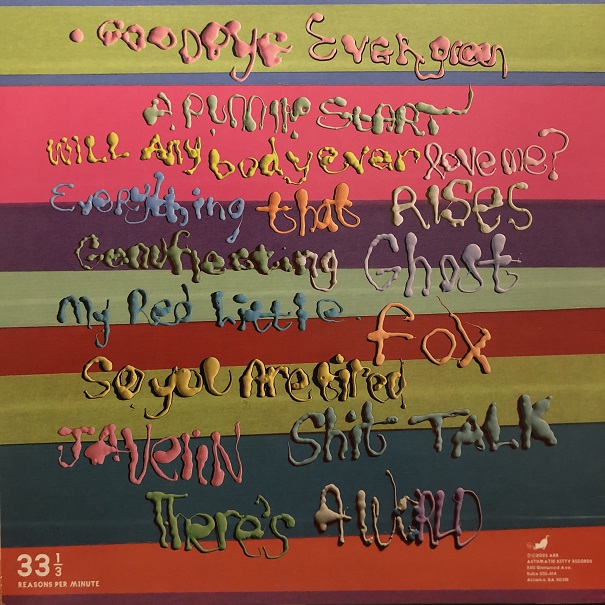 • GOODBYE EVERgreen
A RUNNING START
WILL Any body ever love me?
Everything that RISES
Genuflecting Ghost
My Red Little Fox
So you Are tired
JAVeliN Shit TALK
There's A WORLD
33 1/3
REASONS PER MINUTE
ASTHMATIC KITTY RECORDS